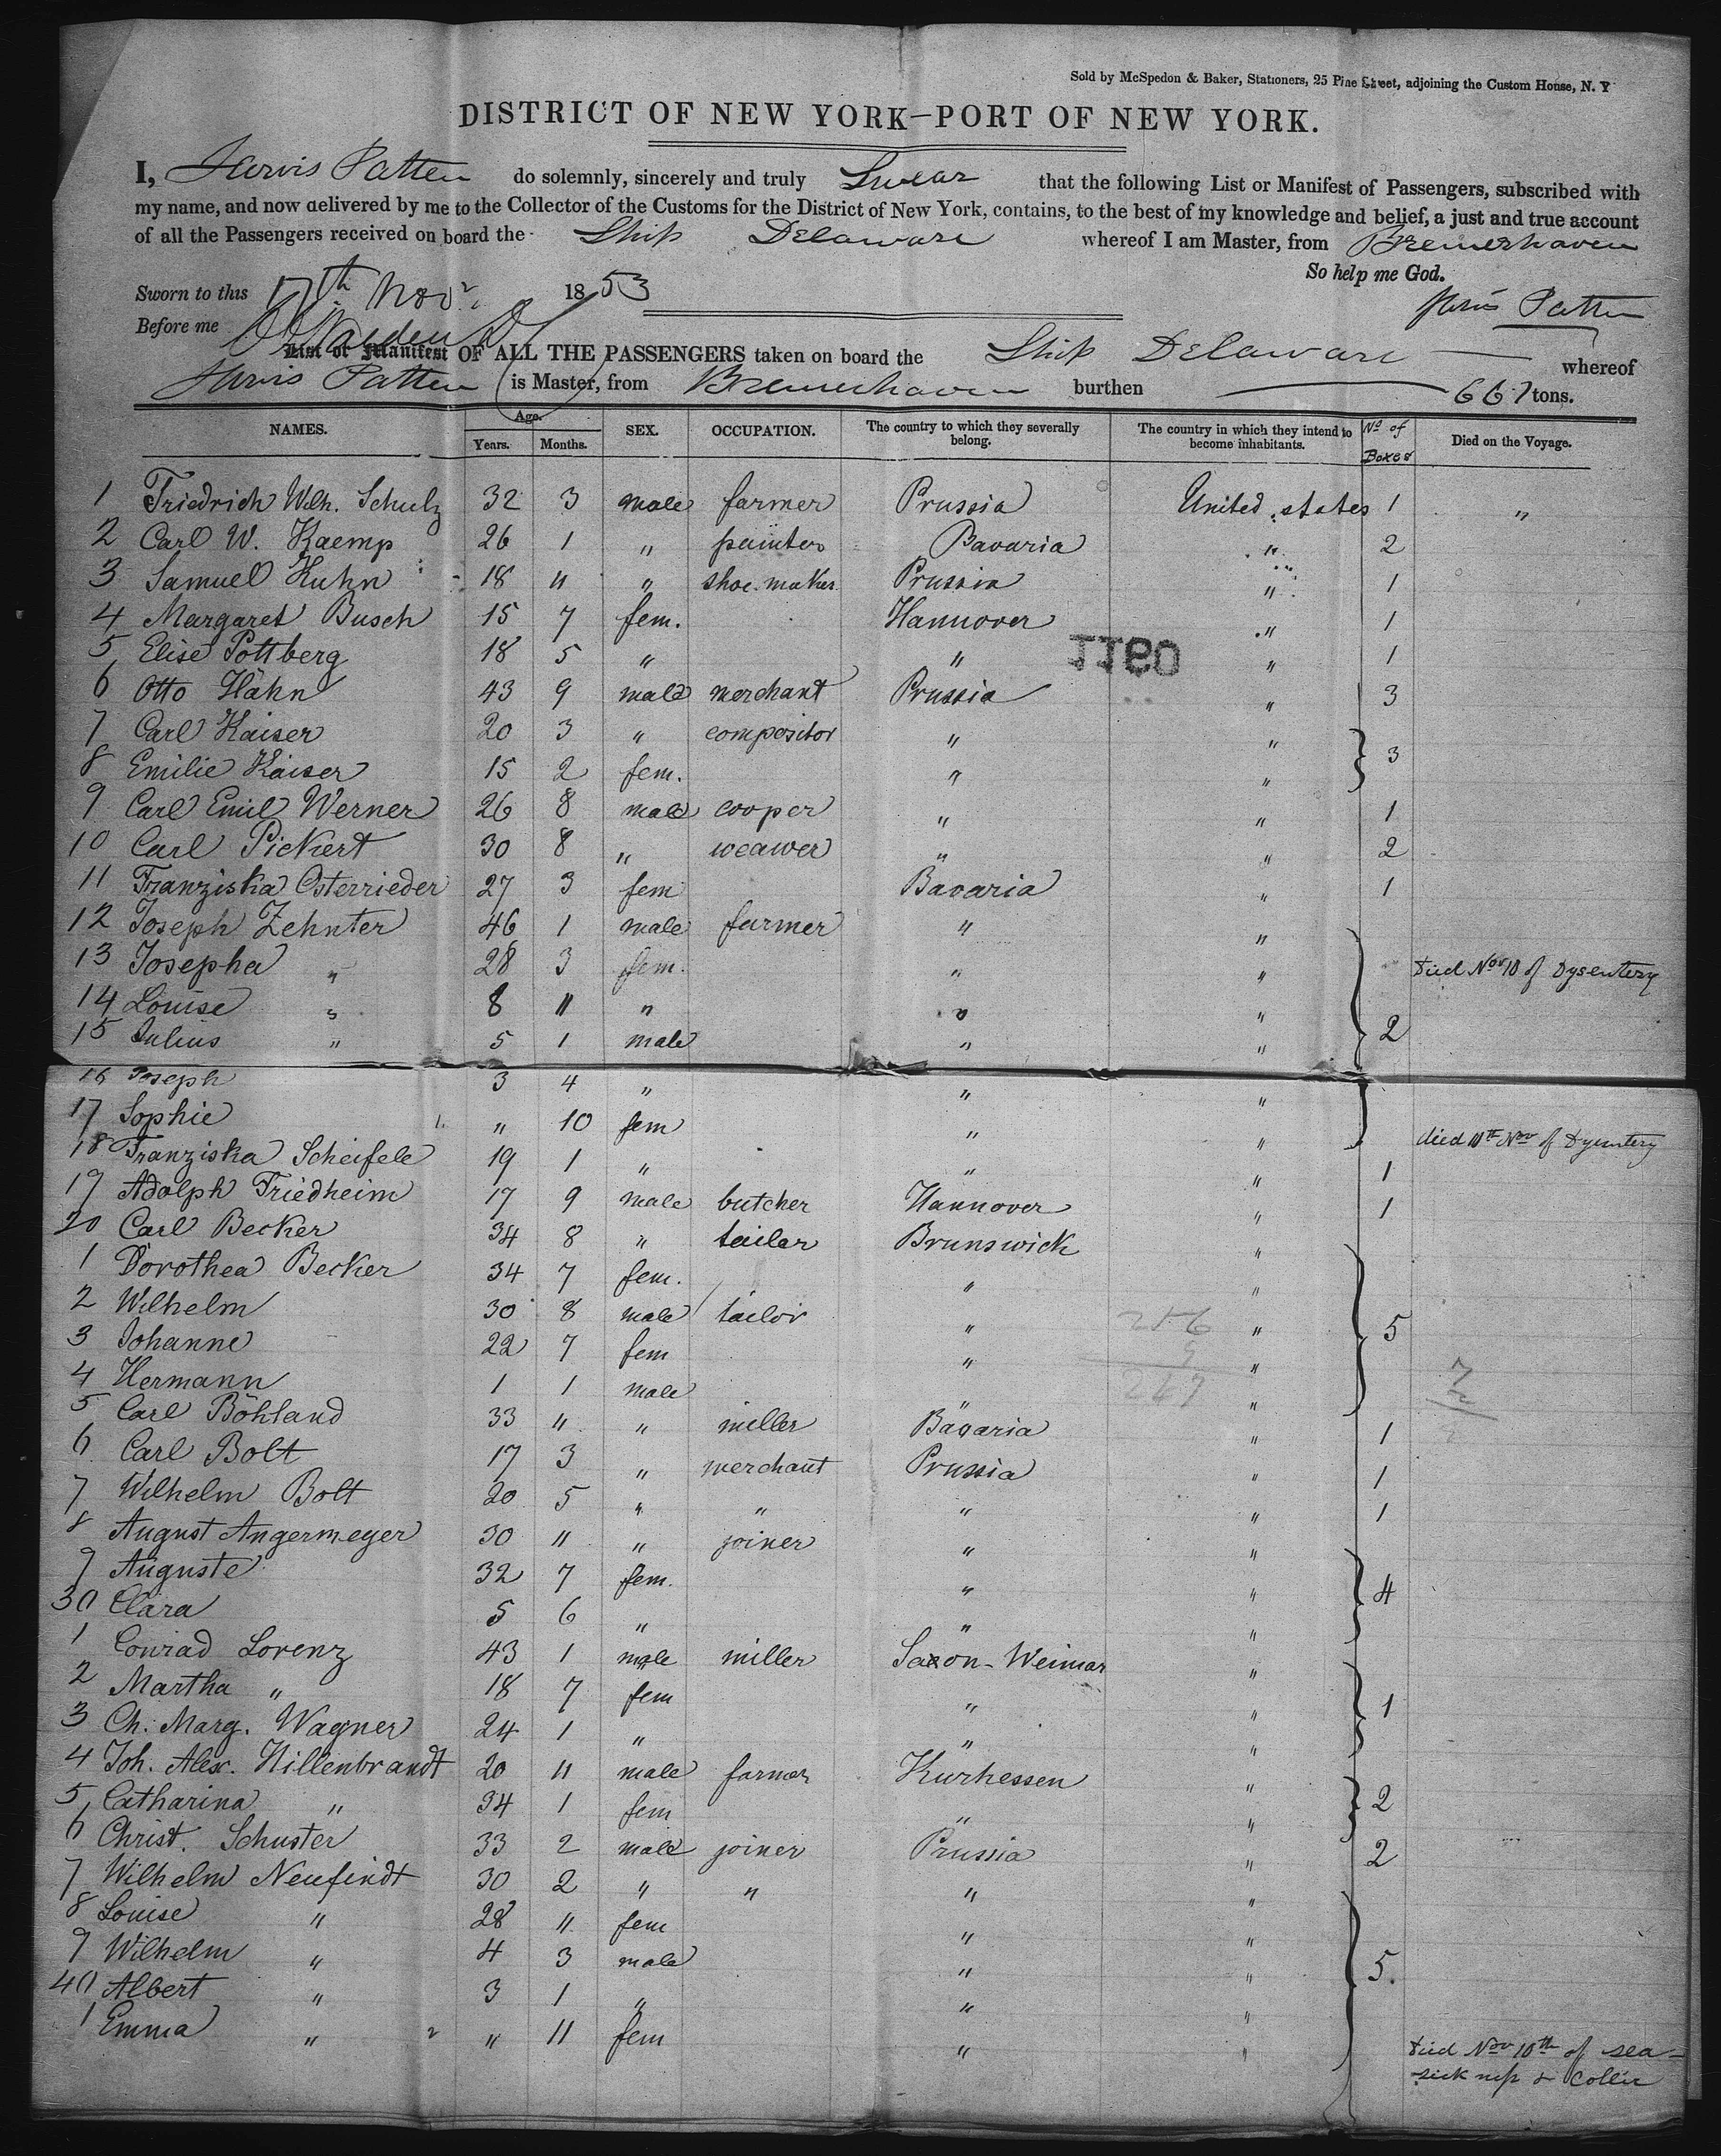 Sold by McSpedon & Baker, Stationers, 25 Pine Street, adjoining the Custom House, N. Y
DISTRICT OF NEW YORK—PORT OF NEW YORK.
I, Jarvis Patten do solemnly, sincerely and truly Swear that the following List or Manifest of Passengers, subscribed with
my name, and now delivered by me to the Collector of the Customs for the District of New York, contains, to the best of my knowledge and belief, a just and true account
of all the Passengers received on board the Ship Delaware whereof I am Master, from Bremerhaven
So help me God.
Sworn to this 17th Novr. 1853
Jarvis Patten
Before me
List or Manifest OF ALL THE PASSENGERS taken on board the Ship Delaware whereof
Jarvis Patten is Master, from Bremerhaven burthen 667 tons.
NAMES. Age. Years. Months. SEX. OCCUPATION. The country to which they severally belong. The country in which they intend to become inhabitants. No of Boxes Died on the Voyage.
1 Friedrich Wilh. Schulz 32 3 male farmer Prussia United states 1 "
2 Carl W. Kaemp 26 1 " painter Bavaria " 2
3 Samuel Kuhn 18 " " shoe.maker Prussia " 1
4 Margaret Busch 15 7 fem. Hannover " 1
5 Elise Pottberg 18 5 " " " 1
1180
6 Otto Hähn 43 9 male merchant Prussia " 3
7 Carl Kaiser 20 3 " compositor " "
8 Emilie Kaiser 15 2 fem. " " 3
9 Carl Emil Werner 26 8 male cooper " " 1
10 Carl Pickert 30 8 " weawer " " 2
11 Franziska Osterrieder 27 3 fem Bavaria " 1
12 Joseph Zehnter 46 1 male farmer " "
13 Josepha " 28 3 fem. " " Died Nov 10 of Dysentery
14 Louise " 8 11 " " "
15 Julius " 5 1 male " " 2
16 Joseph 3 4 " " "
17 Sophie " 10 fem " " died 11th Nov of Dysentery
18 Franziska Scheifele 19 1 " " " 1
19 Adolph Friedheim 17 9 male butcher Hannover " 1
20 Carl Becker 34 8 " tailor Brunswick "
1 Dorothea Becker 34 7 fem. " "
2 Wilhelm 30 8 male tailor " " 5
3 Johanne 22 7 fem " "
4 Hermann 1 1 male " "
256
9
247
5 Carl Böhland 33 " " miller Bavaria " 1
6 Carl Bolt 17 3 " merchant Prussia " 1
7 Wilhelm Bolt 20 5 " " " " 1
8 August Angermeyer 30 " " joiner " "
9 Auguste 32 7 fem. " " 4
30 Clara 5 6 " " "
1 Conrad Lorenz 43 1 male miller Saxon-Weimar "
2 Martha " 18 7 fem " " 1
3 Ch. Marg. Wagner 24 1 " " "
4 Joh. Alex. Hillenbrandt 20 11 male farmer Kurhessen "
5 Catharina " 34 1 fem " " 2
6 Christ. Schuster 33 2 male joiner Prussia " 2
7 Wilhelm Neufindt 30 2 " " " "
8 Louise " 28 11 fem " "
9 Wilhelm " 4 3 male " " 5.
40 Albert " 3 1 " " "
1 Emma " " 11 fem " " Died Nov 10th of sea-
sick ness &